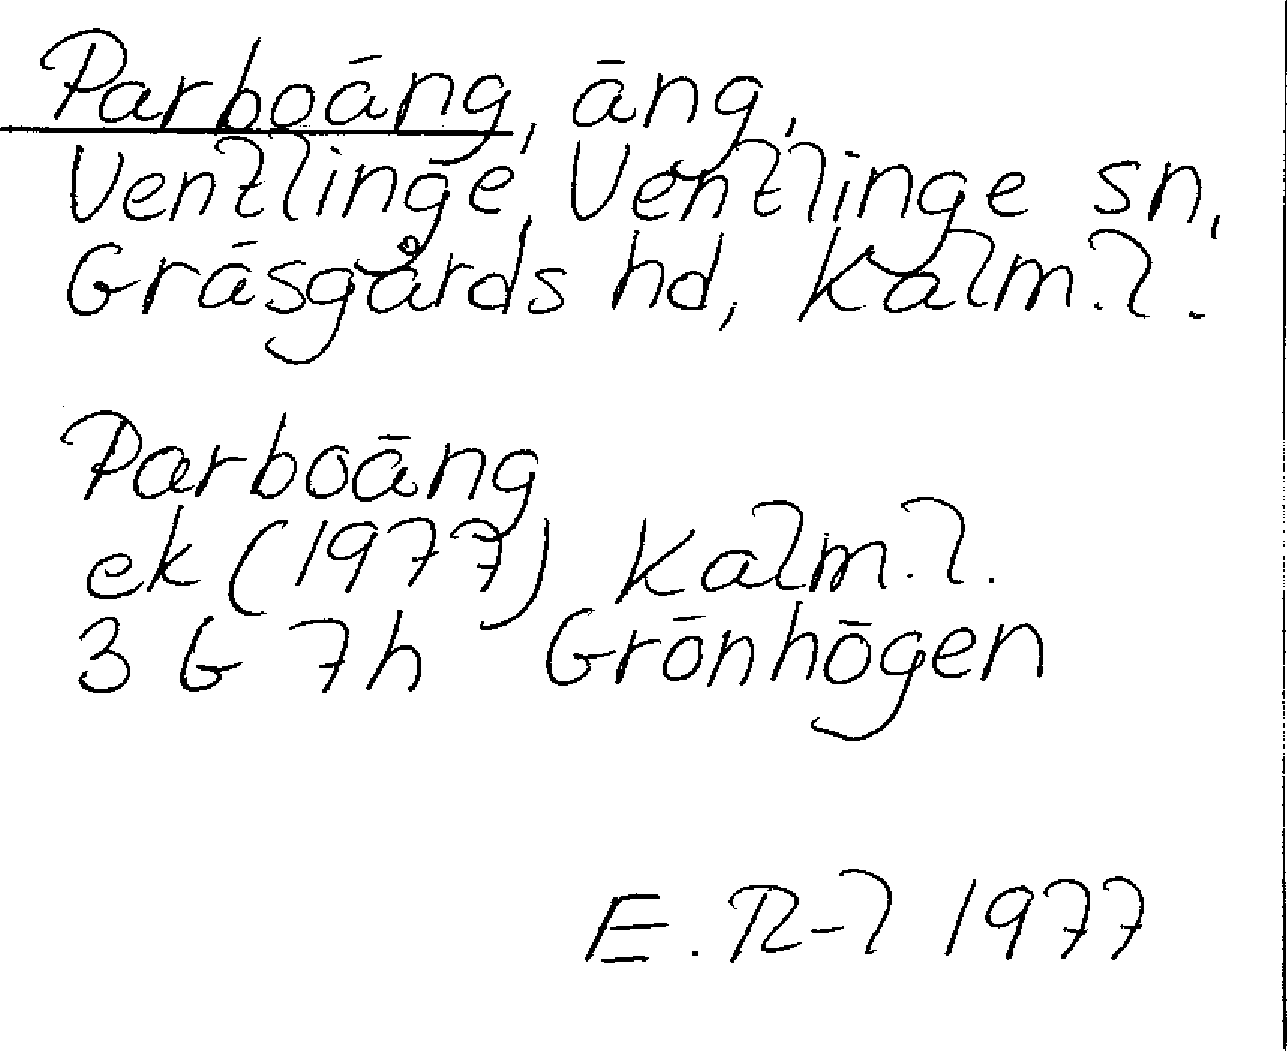 Parboäng, äng,
Ventlinge, Ventlinge sn,
Gräsgårds hd, Kalm.l.
Parboäng
ek (1977) Kalm.l.
3 G 7h Grönhögen
E. R-l 1977